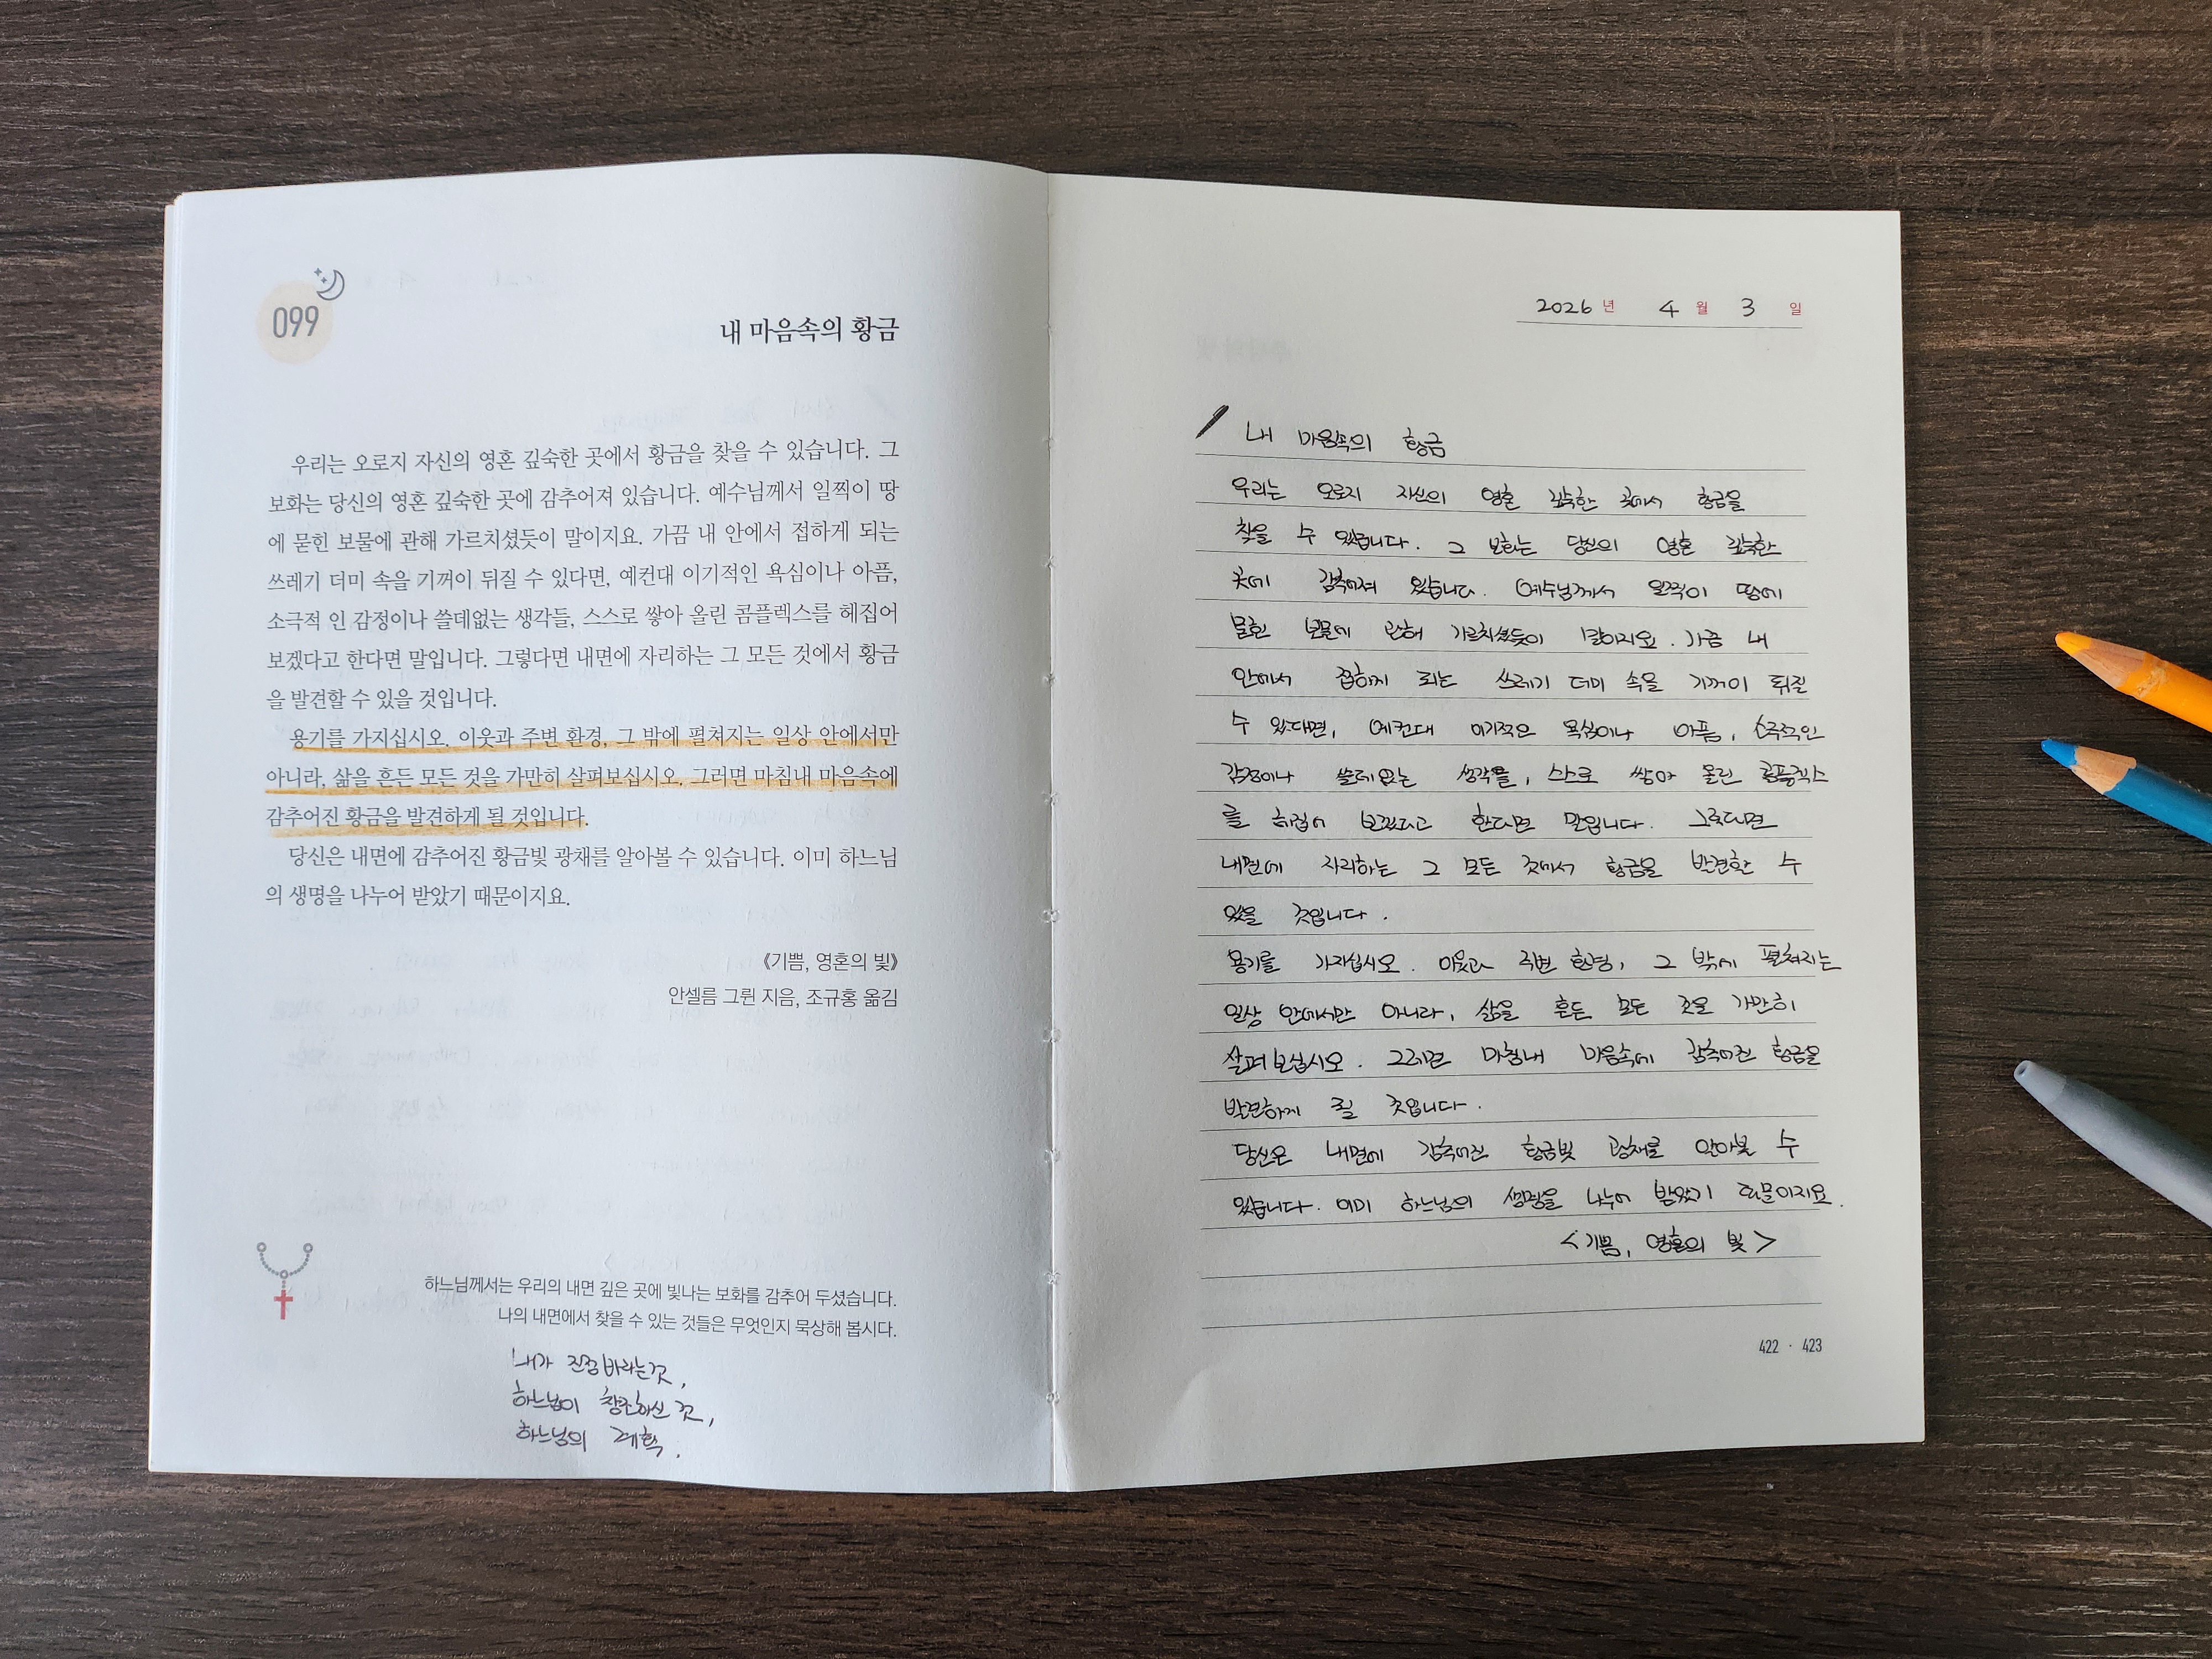 099
내 마음속의 황금
우리는 오로지 자신의 영혼 깊숙한 곳에서 황금을 찾을 수 있습니다. 그
보화는 당신의 영혼 깊숙한 곳에 감추어져 있습니다. 예수님께서 일찍이 땅
에 묻힌 보물에 관해 가르치셨듯이 말이지요. 가끔 내 안에서 접하게 되는
쓰레기 더미 속을 기꺼이 뒤질 수 있다면, 예컨대 이기적인 욕심이나 아픔,
소극적 인 감정이나 쓸데없는 생각들, 스스로 쌓아 올린 콤플렉스를 헤집어
보겠다고 한다면 말입니다. 그렇다면 내면에 자리하는 그 모든 것에서 황금
을 발견할 수 있을 것입니다.
용기를 가지십시오. 이웃과 주변 환경, 그 밖에 펼쳐지는 일상 안에서만
아니라, 삶을 흔든 모든 것을 가만히 살펴보십시오. 그러면 마침내 마음속에
감추어진 황금을 발견하게 될 것입니다.
당신은 내면에 감추어진 황금빛 광채를 알아볼 수 있습니다. 이미 하느님
의 생명을 나누어 받았기 때문이지요.
《기쁨, 영혼의 빛》
안셀름 그륀 지음, 조규홍 옮김
하느님께서는 우리의 내면 깊은 곳에 빛나는 보화를 감추어 두셨습니다.
나의 내면에서 찾을 수 있는 것들은 무엇인지 묵상해 봅시다.
내가 진정 바라는 것,
하느님이 창조하신 것,
하느님의 계획.
2026 년 4 월 3 일
내 마음속의 황금
우리는 오로지 자신의 영혼 깊숙한 곳에서 황금을
찾을 수 있습니다. 그 보화는 당신의 영혼 깊숙한
곳에 감추어져 있습니다. 예수님께서 일찍이 땅에
묻힌 보물에 관해 가르치셨듯이 말이지요. 가끔 내
안에서 접하게 되는 쓰레기 더미 속을 기꺼이 뒤질
수 있다면, 예컨대 이기적은 욕심이나 아픔, 소극적인
감정이나 쓸데없는 생각들, 스스로 쌓아 올린 콤플렉스
를 헤집어 보겠다고 한다면 말입니다. 그렇다면
내면에 자리하는 그 모든 것에서 황금을 발견할 수
있을 것입니다.
용기를 가지십시오. 이웃과 주변 환경, 그 밖에 펼쳐지는
일상 안에서만 아니라, 삶을 흔든 모든 것을 가만히
살펴보십시오. 그러면 마침내 마음속에 감추어진 황금을
발견하게 될 것입니다.
당신은 내면에 감추어진 황금빛 광채를 알아볼 수
있습니다. 이미 하느님의 생명을 나누어 받았기 때문이지요.
<기쁨, 영혼의 빛>
422 · 423